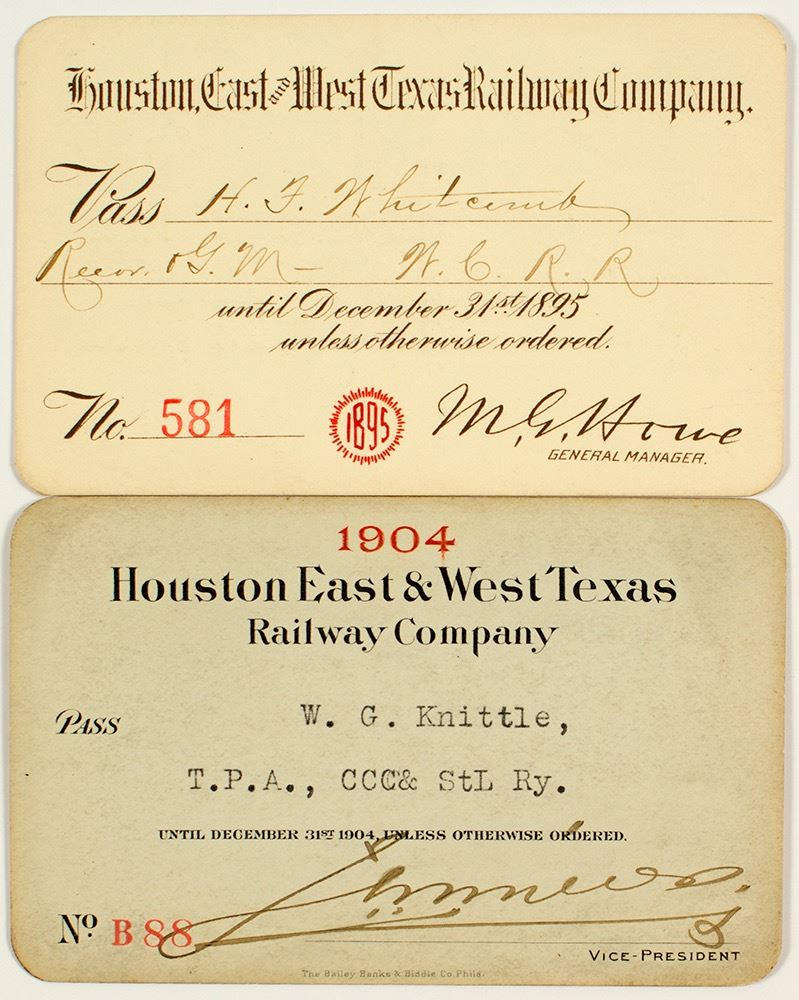 Houston, East and West Texas Railway Company.
Pass H. F. Whitcomb
Recvr. & G. M — W. C. R. R
until December 31st 1895
unless otherwise ordered.
No. 581 1895 M. G. Howe
GENERAL MANAGER.
1904
Houston East & West Texas
Railway Company
PASS W. G. Knittle,
T.P.A., CCC& StL Ry.
UNTIL DECEMBER 31ST 1904, UNLESS OTHERWISE ORDERED.
No B 88
VICE-PRESIDENT
The Bailey Banks & Biddle Co. Phila.